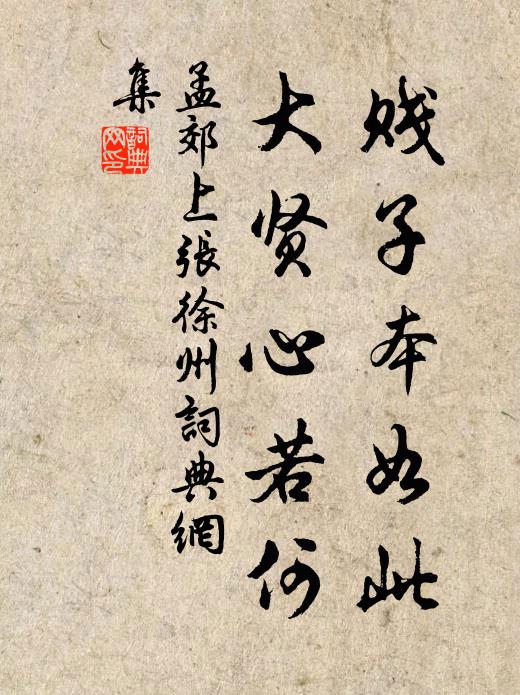 贱子本如此
大贤心若何
孟郊上張徐州詞典網
集
詞典網印